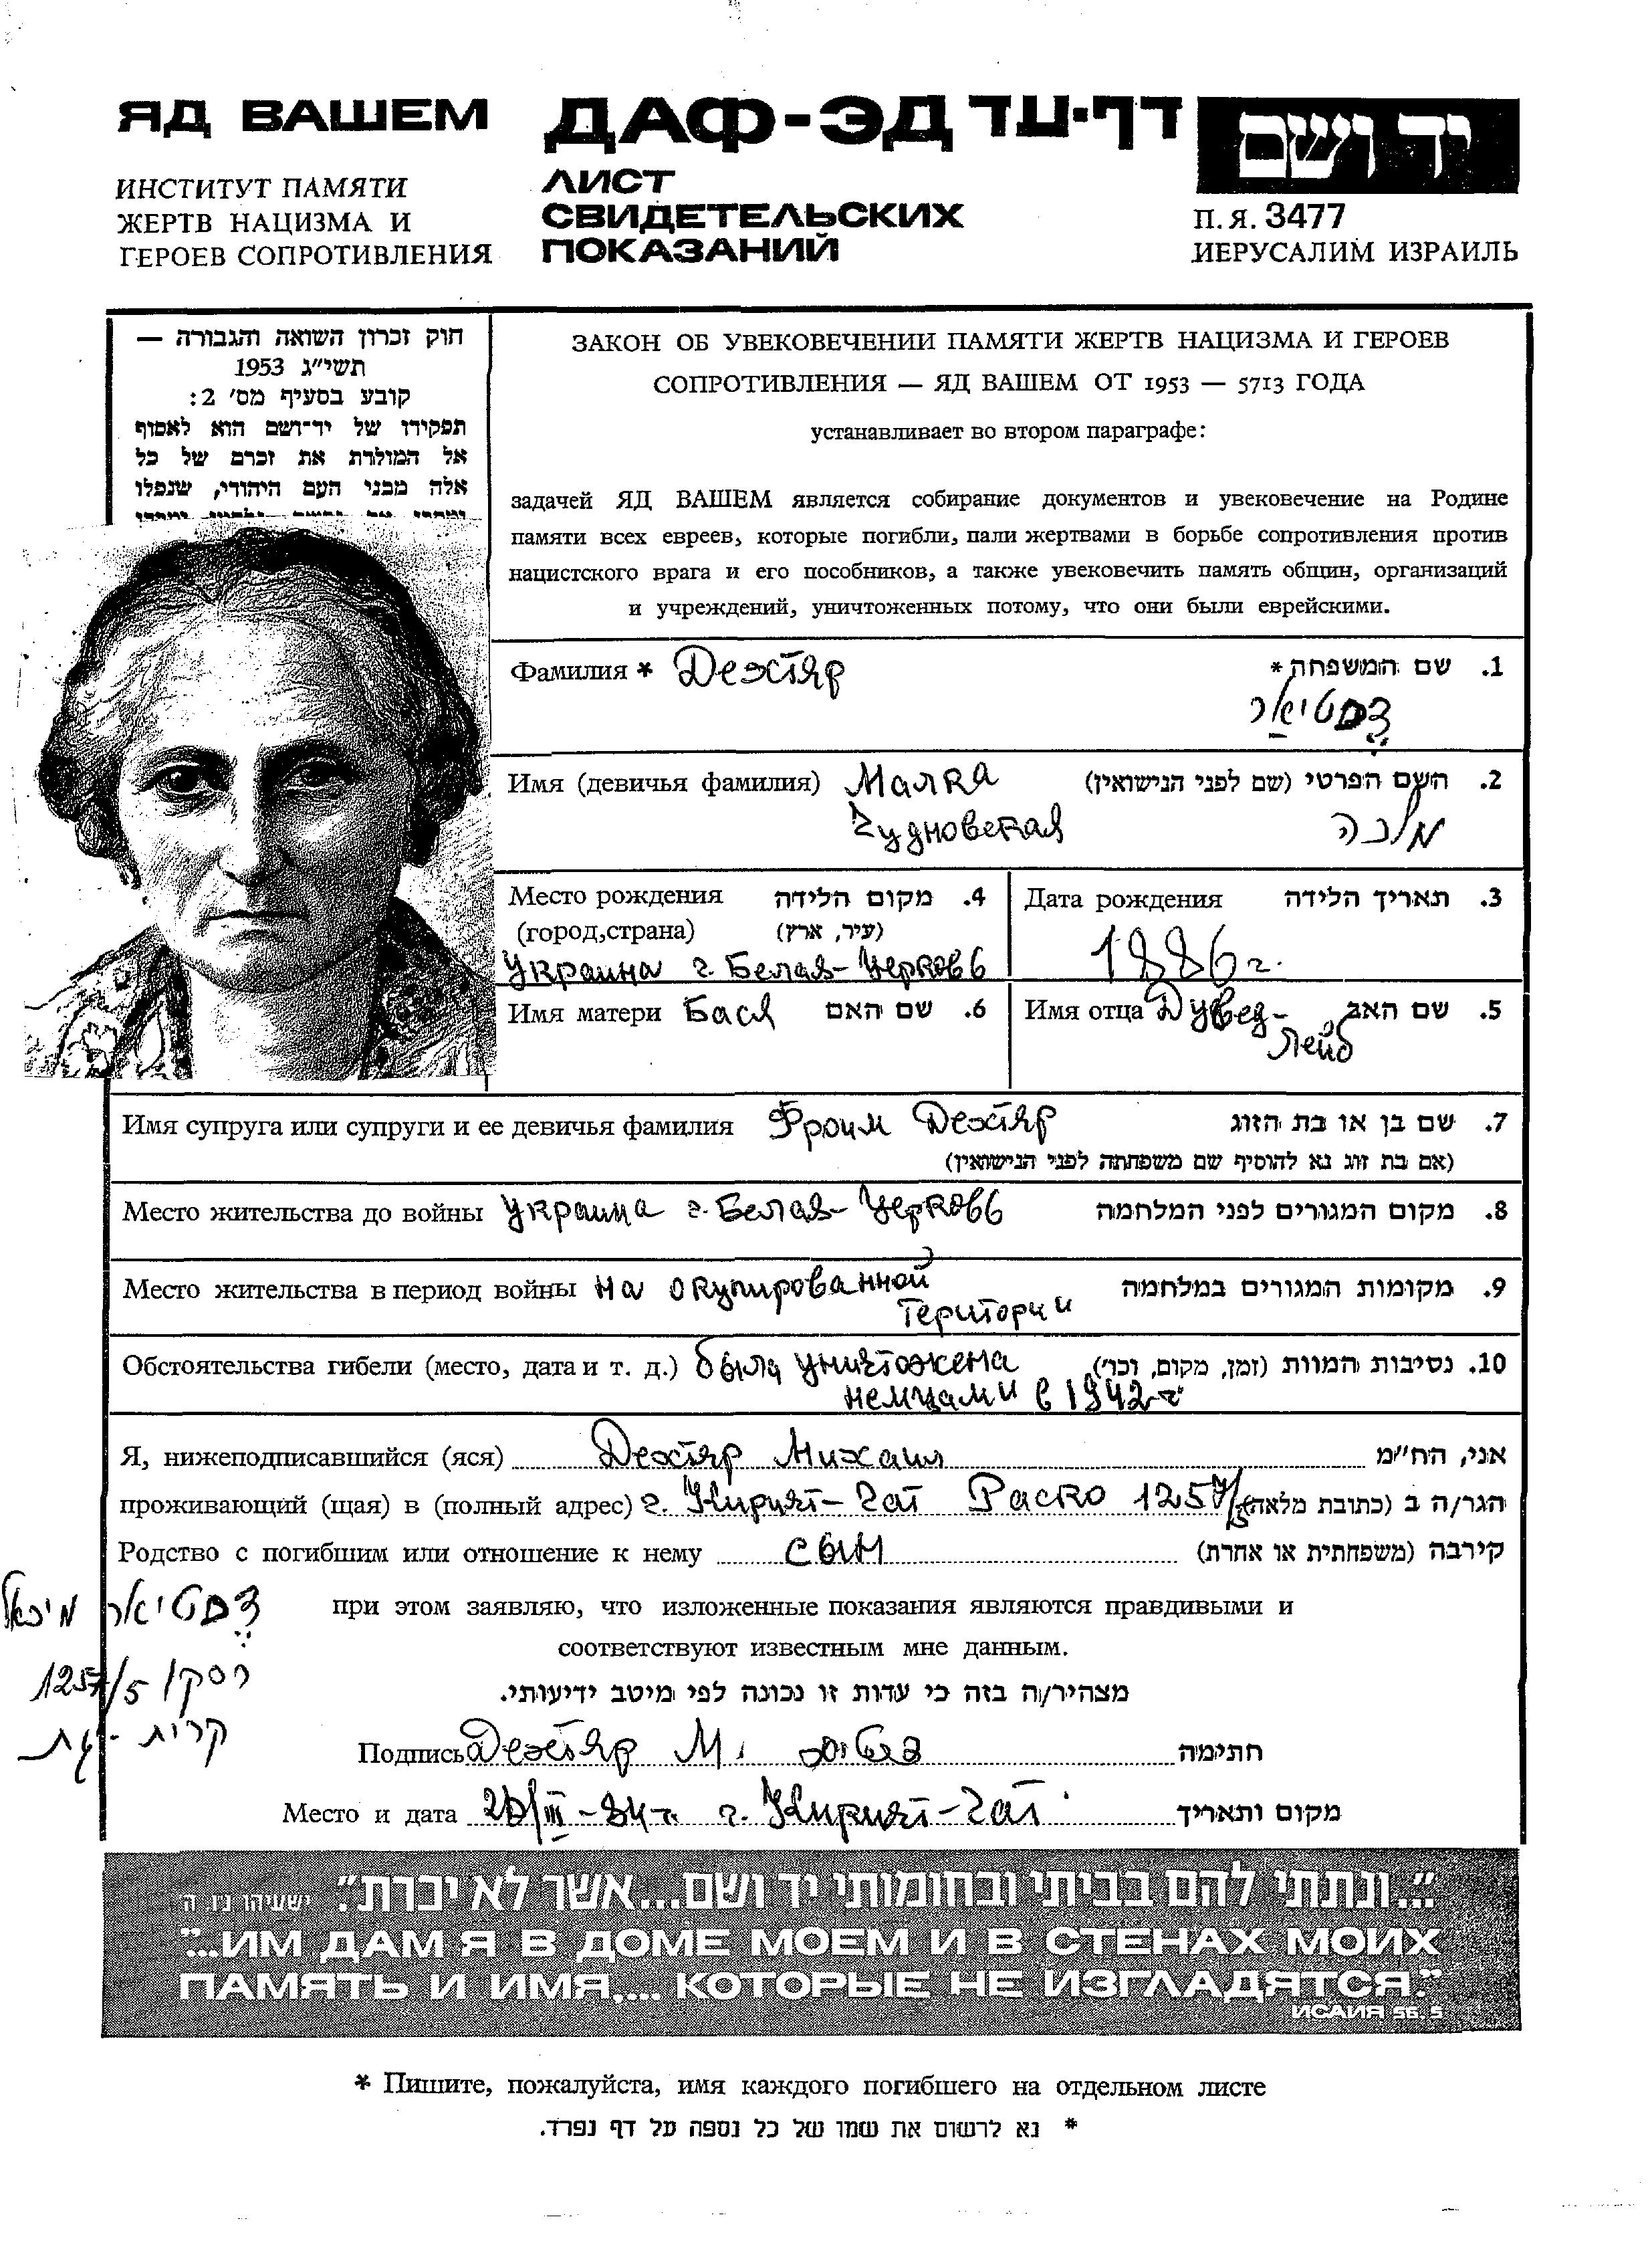 ЯД ВАШЕМ
ИНСТИТУТ ПАМЯТИ
ЖЕРТВ НАЦИЗМА И
ГЕРОЕВ СОПРОТИВЛЕНИЯ
ДАФ-ЭД דף-עד
ЛИСТ
СВИДЕТЕЛЬСКИХ
ПОКАЗАНИЙ
יד ושם
П. Я. 3477
ИЕРУСАЛИМ ИЗРАИЛЬ
חוק זכרון השואה והגבורה —
תשי״ג 1953
קובע בסעיף מס׳ 2:
תפקידו של יד־ושם הוא לאסוף
אל המולדת את זכרם של כל
אלה מבני העם היהודי, שנפלו
ЗАКОН ОБ УВЕКОВЕЧЕНИИ ПАМЯТИ ЖЕРТВ НАЦИЗМА И ГЕРОЕВ
СОПРОТИВЛЕНИЯ — ЯД ВАШЕМ ОТ 1953 — 5713 ГОДА
устанавливает во втором параграфе:
задачей ЯД ВАШЕМ является собирание документов и увековечение на Родине
памяти всех евреев, которые погибли, пали жертвами в борьбе сопротивления против
нацистского врага и его пособников, а также увековечить память общин, организаций
и учреждений, уничтоженных потому, что они были еврейскими.
Фамилия * Дехтяр 1. שם המשפחה*
דכטיאר
Имя (девичья фамилия) Малка 2. השם הפרטי (שם לפני הנישואין)
Чудновская מלכה
Место рождения 4. מקום הלידה
(город,страна) (עיר, ארץ)
Украина г. Белая-Церковь
Дата рождения 3. תאריך הלידה
1886 г.
Имя матери Бася 6. שם האם
Имя отца Дувед- 5. שם האב
Лейб
Имя супруга или супруги и ее девичья фамилия Фроим Дехтяр 7. שם בן או בת הזוג
(אם בת זוג נא להוסיף שם משפחתה לפני הנישואין)
Место жительства до войны Украина г. Белая-Церковь 8. מקום המגורים לפני המלחמה
Место жительства в период войны на окупированной 9. מקומות המגורים במלחמה
територии
Обстоятельства гибели (место, дата и т. д.) была уничтожена 10. נסיבות המוות (זמן, מקום, וכו׳)
немцами в 1942 г
Я, нижеподписавшийся (яся) Дехтяр Михаил אני, הח״מ
проживающий (щая) в (полный адрес) г. Кирият-Гат Раско 1257/5 הגר/ה ב (כתובת מלאה)
Родство с погибшим или отношение к нему сын קירבה (משפחתית או אחרת)
דכטיאר מיכאל
רסקו 1257/5
קרית-גת
при этом заявляю, что изложенные показания являются правдивыми и
соответствуют известным мне данным.
מצהיר/ה בזה כי עדות זו נכונה לפי מיטב ידיעותי.
Подпись Дехтяр М. חתימה
Место и дата /III-84г. г. Кирият-Гат מקום ותאריך
״...ונתתי להם בביתי ובחומותי יד ושם...אשר לא יכרת״. ישעיהו נ״ו, ה׳
"...ИМ ДАМ Я В ДОМЕ МОЕМ И В СТЕНАХ МОИХ
ПАМЯТЬ И ИМЯ.... КОТОРЫЕ НЕ ИЗГЛАДЯТСЯ."
ИСАИЯ 56, 5
* Пишите, пожалуйста, имя каждого погибшего на отдельном листе
* נא לרשום את שמו של כל נספה על דף נפרד.